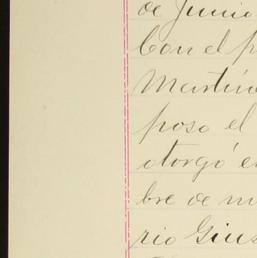 de Junio
Con el p
Martín
poso el
otorgó en
bre de m
rio Gius